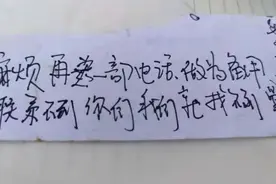 麻烦再装一部电话.做为备用.
联系不到你们我们就找不到